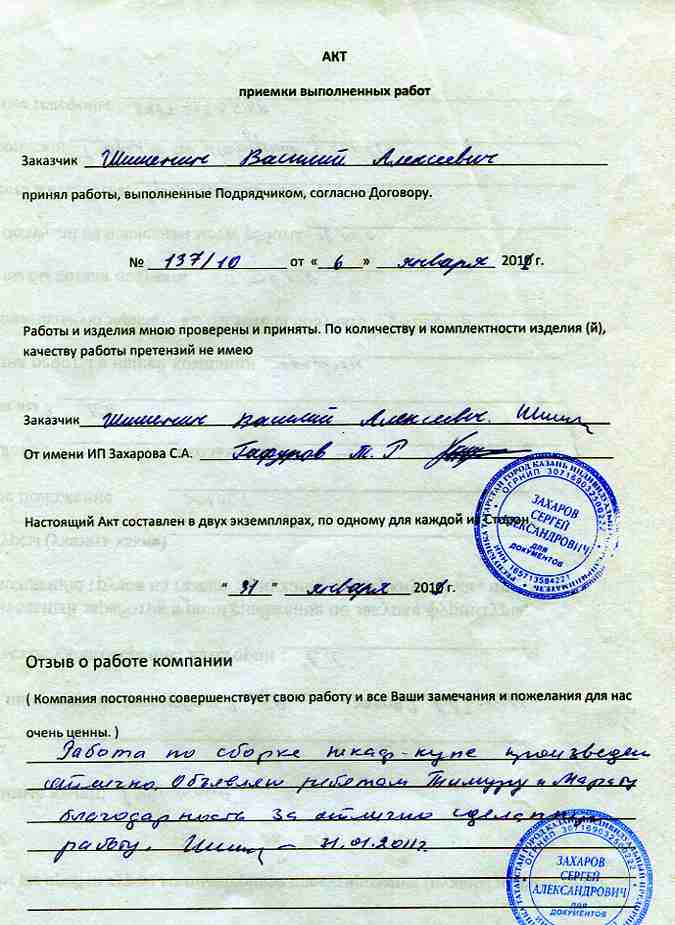 АКТ
приемки выполненных работ
Заказчик Шишенин Василий Алексеевич
принял работы, выполненные Подрядчиком, согласно Договору.
№ 137/10 от « 6 » января 2011 г.
Работы и изделия мною проверены и приняты. По количеству и комплектности изделия (й),
качеству работы претензий не имею
Заказчик Шишенин Василий Алексеевич.
От имени ИП Захарова С.А. Гафуров Т. Р
Настоящий Акт составлен в двух экземплярах, по одному для каждой из Сторон
" 31 " января 2011 г.
РЕСПУБЛИКА ТАТАРСТАН ГОРОД КАЗАНЬ ИНДИВИДУАЛЬНЫЙ ПРЕДПРИНИМАТЕЛЬ
ЗАХАРОВ
СЕРГЕЙ
АЛЕКСАНДРОВИЧ
ДЛЯ
ДОКУМЕНТОВ
Отзыв о работе компании
( Компания постоянно совершенствует свою работу и все Ваши замечания и пожелания для нас
очень ценны. )
Работа по сборке шкаф-купе произведен
отлично. Объявляю ребятам Тимуру и Марату
благодарность за отлично сделанную
работу. 31.01.2011г.
ЗАХАРОВ
СЕРГЕЙ
АЛЕКСАНДРОВИЧ
ДЛЯ
ДОКУМЕНТОВ